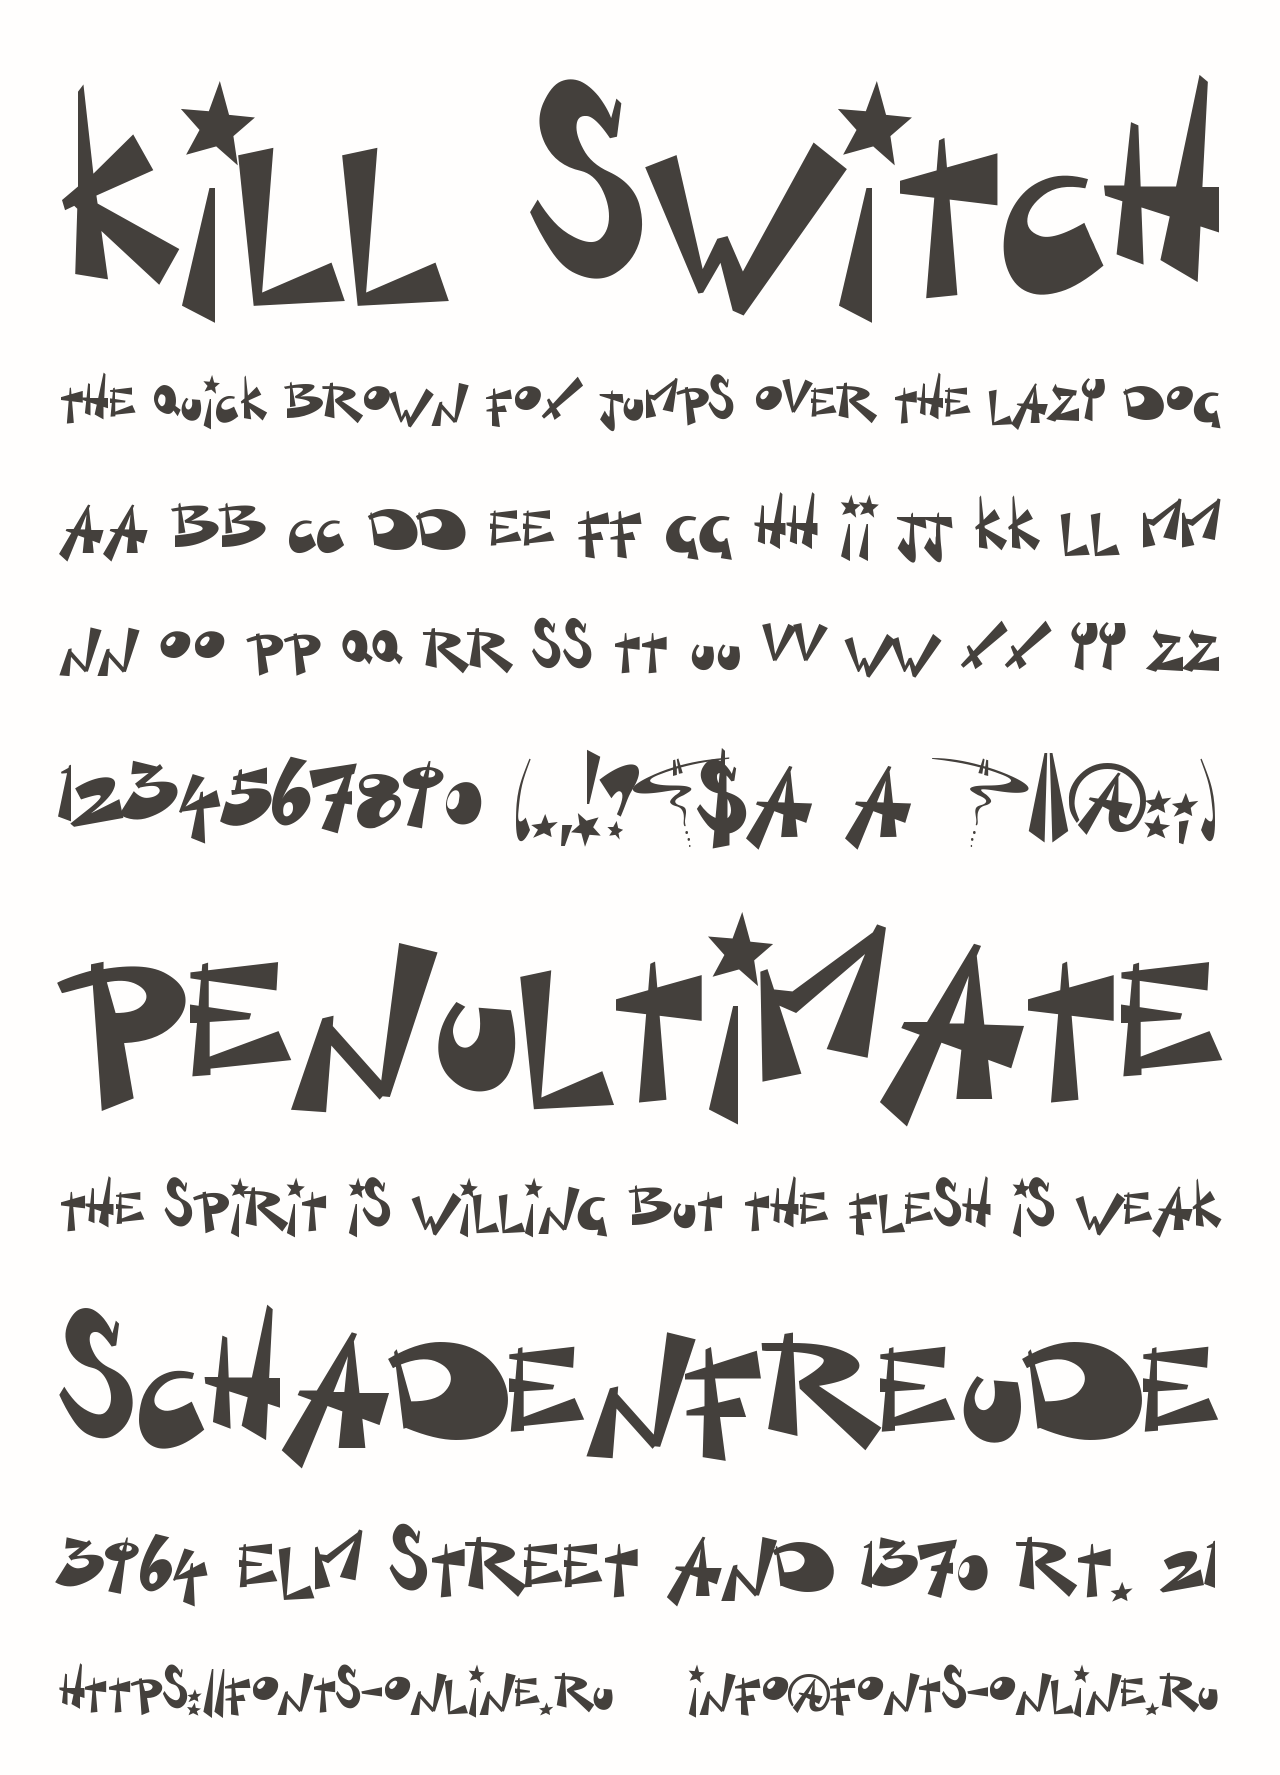 Kill Switch
The Quick Brown Fox Jumps Over The Lazy Dog
Aa Bb Cc Dd Ee Ff Gg Hh Ii Jj Kk Ll Mm
Nn Oo Pp Qq Rr Ss Tt Uu Vv Ww Xx Yy Zz
1234567890 (.,!?$A A/\@:;)
Penultimate
The Spirit Is Willing But The Flesh Is Weak
Schadenfreude
3964 Elm Street and 1370 Rt. 21
https://fonts-online.ru info@fonts-online.ru